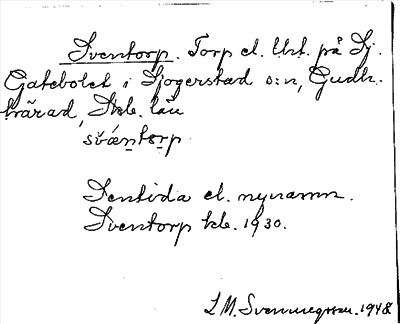 Sventorp. Torp el. lht. på Sj.
Gatebolet i Sjogerstad s:n, Gudh.
härad, Skb. län
sväntorp
Sentida el. nynamn.
Sventorp kb. 1930.
L M. Svennegson. 1948